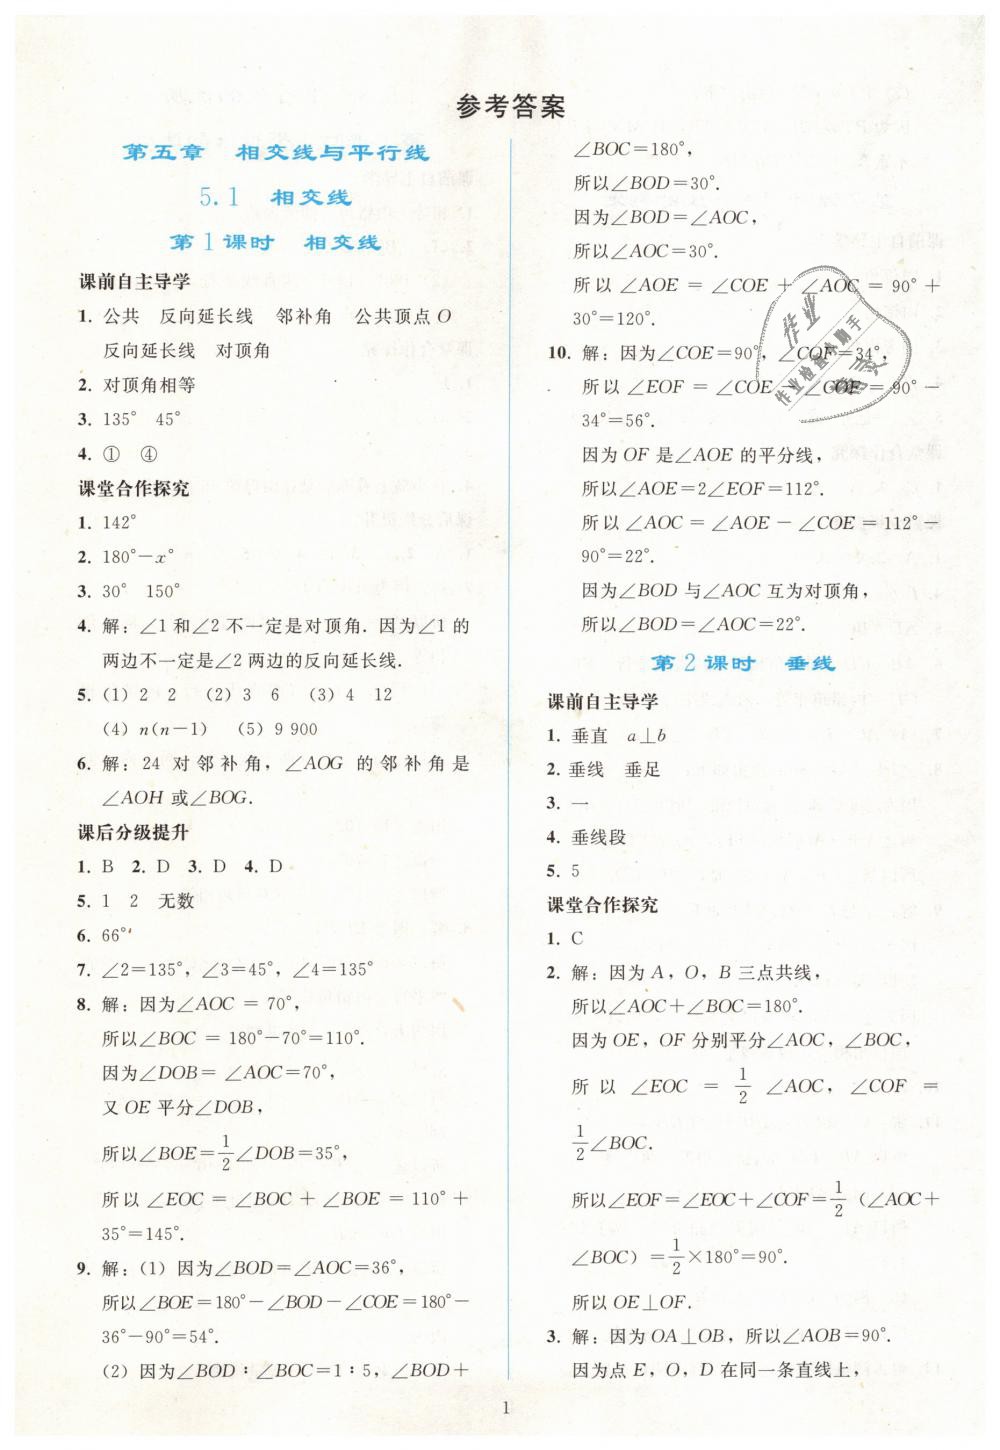 参考答案
第五章 相交线与平行线
5.1 相交线
第1课时 相交线
课前自主导学
1. 公共 反向延长线 邻补角 公共顶点O
反向延长线 对顶角
2. 对顶角相等
3. 135° 45°
4. ① ④
课堂合作探究
1. 142°
2. 180°－x°
3. 30° 150°
4. 解：∠1和∠2不一定是对顶角. 因为∠1的
两边不一定是∠2两边的反向延长线.
5. (1) 2 2 (2) 3 6 (3) 4 12
(4) n(n－1) (5) 9 900
6. 解：24 对邻补角，∠AOG 的邻补角是
∠AOH 或∠BOG.
课后分级提升
1. B 2. D 3. D 4. D
5. 1 2 无数
6. 66°
7. ∠2＝135°，∠3＝45°，∠4＝135°
8. 解：因为∠AOC ＝ 70°，
所以∠BOC ＝ 180°－70°＝110°.
因为∠DOB＝ ∠AOC＝70°，
又 OE 平分∠DOB，
所以∠BOE＝1/2∠DOB＝35°，
所以 ∠EOC ＝ ∠BOC ＋ ∠BOE ＝ 110°＋
35°＝145°.
9. 解：(1) 因为∠BOD＝∠AOC＝36°，
所以∠BOE＝180°－∠BOD－∠COE＝180°－
36°－90°＝54°.
(2) 因为∠BOD∶∠BOC＝1∶5，∠BOD＋
∠BOC＝180°，
所以∠BOD＝30°.
因为∠BOD＝∠AOC，
所以∠AOC＝30°.
所以 ∠AOE ＝ ∠COE ＋ ∠AOC ＝ 90°＋
30°＝120°.
10. 解：因为∠COE＝90°，∠COF＝34°，
所以 ∠EOF ＝ ∠COE － ∠COF ＝ 90°－
34°＝56°.
因为 OF 是∠AOE 的平分线，
所以∠AOE＝2∠EOF＝112°.
所以 ∠AOC ＝ ∠AOE － ∠COE ＝ 112°－
90°＝22°.
因为∠BOD 与∠AOC 互为对顶角，
所以∠BOD＝∠AOC＝22°.
第2课时 垂线
课前自主导学
1. 垂直 a⊥b
2. 垂线 垂足
3. 一
4. 垂线段
5. 5
课堂合作探究
1. C
2. 解：因为 A，O，B 三点共线，
所以∠AOC＋∠BOC＝180°.
因为 OE，OF 分别平分∠AOC，∠BOC，
所以 ∠EOC ＝ 1/2 ∠AOC，∠COF ＝
1/2∠BOC.
所以∠EOF＝∠EOC＋∠COF＝1/2（∠AOC＋
∠BOC）＝1/2×180°＝90°.
所以 OE⊥OF.
3. 解：因为 OA⊥OB，所以∠AOB＝90°.
因为点 E，O，D 在同一条直线上，
1
作业
作业检查小助手
精灵